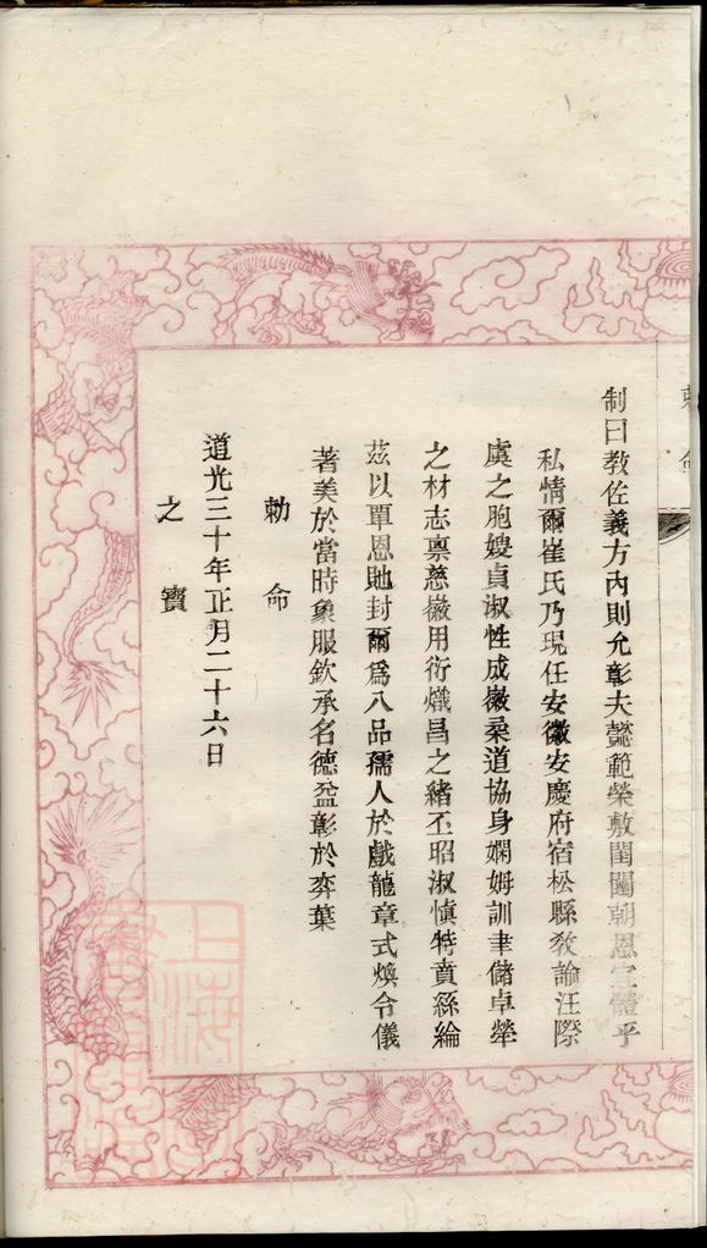 制曰教佐義方內則允彰夫懿範榮敷閨閫朝恩宜體乎
私情爾崔氏乃現任安徽安慶府宿松縣教諭汪際
虞之胞嫂貞淑性成徽柔道協身嫻姆訓聿儲卓犖
之材志禀慈徽用衍熾昌之緒丕昭淑慎特賁絲綸
茲以覃恩貤封爾爲八品孺人於戲龍章式煥令儀
著美於當時象服欽承名德益彰於奕葉
勅命
道光三十年正月二十六日
之寶
上海圖書館藏